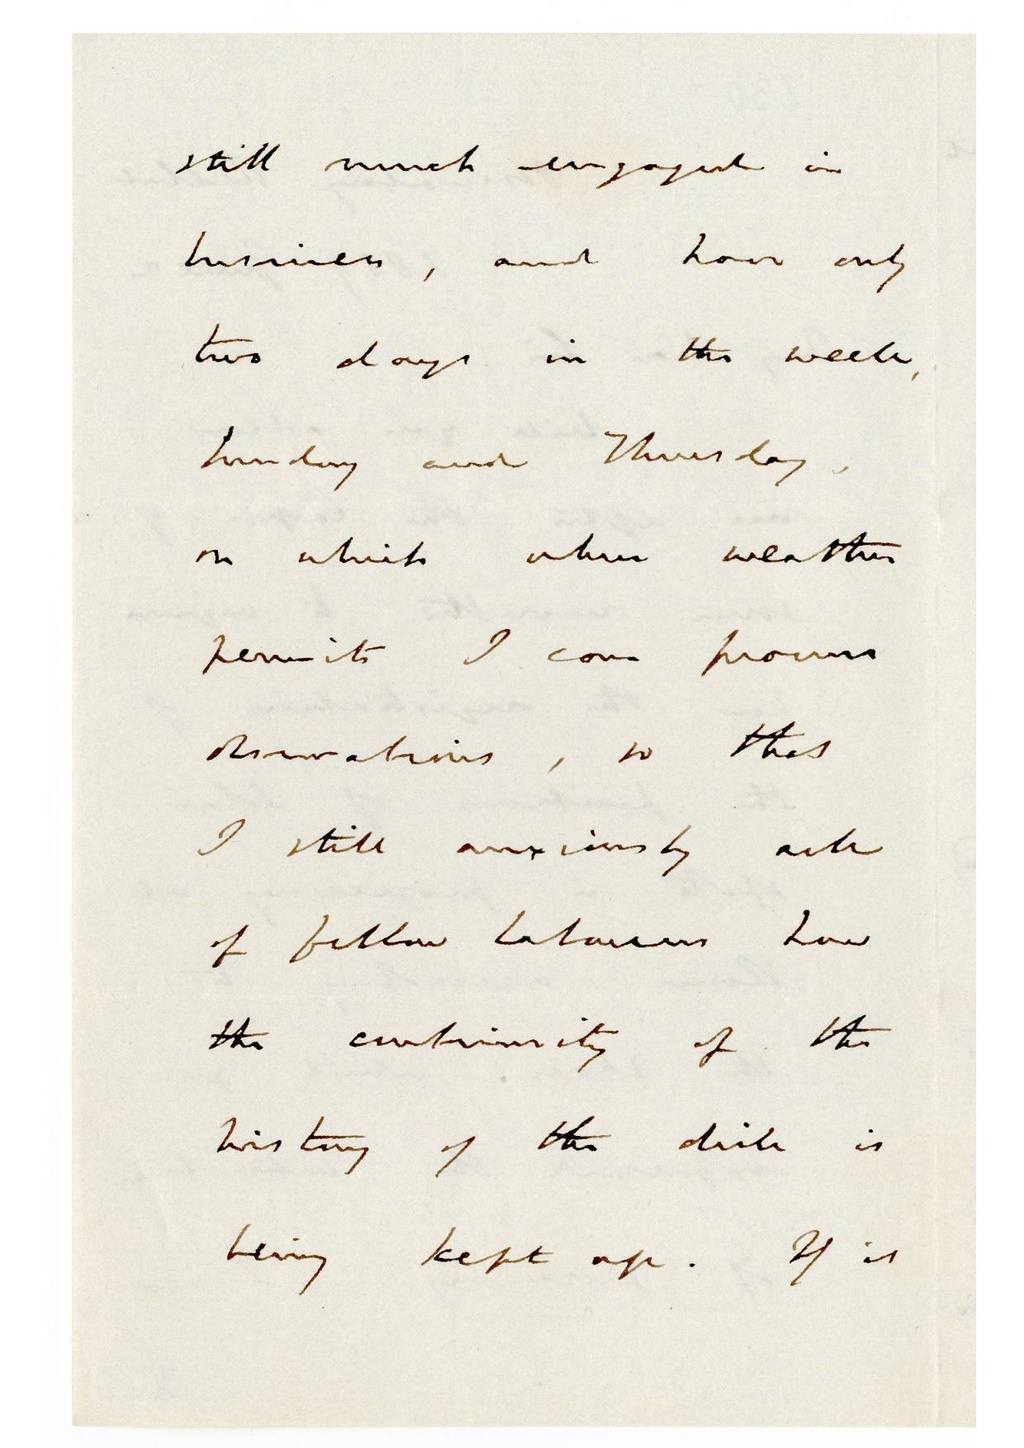 still much engaged in
business, and have only
two days in the week,
Sunday and Thursday,
on which when weather
permits I can procure
observations, so that
I still anxiously ask
of fellow labourers how
the continuity of the
history of the disk is
being kept up. If is